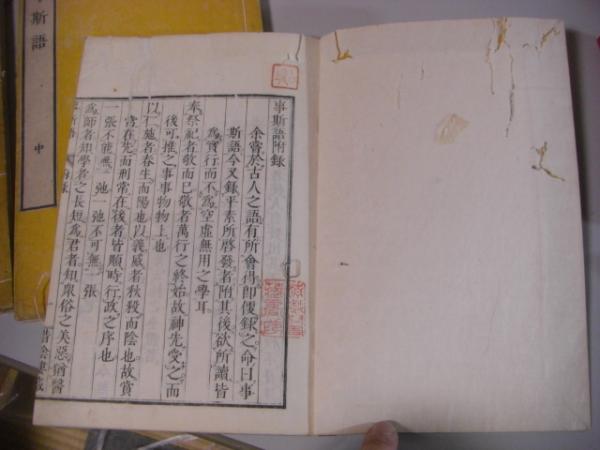 事斯語附録
余嘗於古人之語有所會得卽復録之命曰事
斯語今又錄平素所啓發者附其後欲所讀皆
爲實行而不爲空虛無用之學耳
奉祭祀者敬而已敬者萬行之終始故神先受之而
後可推之事事物物上也
以仁施者春生而陽也以義威者秋殺而陰也故賞
常在先而刑常在後者皆順時行政之序也
一張不能無一弛一弛不可無一張
爲師者知學者之長短爲君者知衆俗之美惡猶醫
事斯語 附録
斯語 中